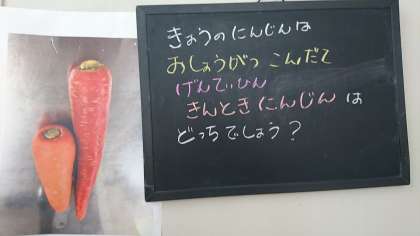 きょうのにんじんは
おしょうがつ こんだて
げんていひん
きんときにんじん は
どっちでしょう？